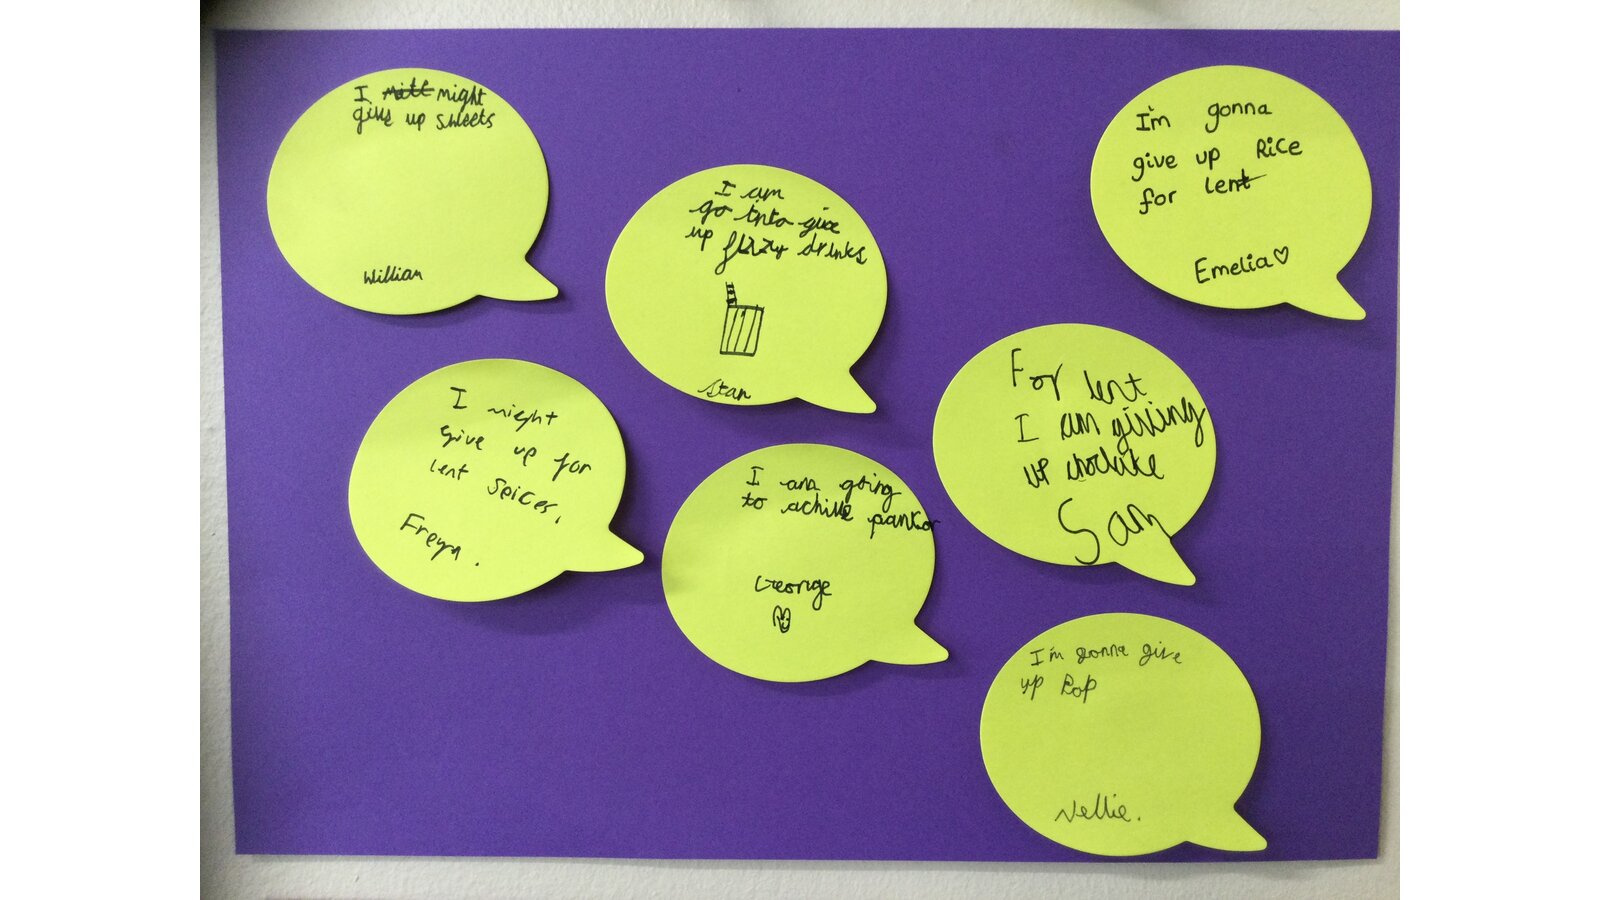 I might
give up sweets
William
I am
go into give
up fizzy drinks
Stan
I'm gonna
give up Rice
for lent
Emelia
I might
give up for
lent spices.
Freya.
I am going
to achive
George
For lent
I am giving
up
Sam
I'm gonna give
up Pop
Nellie.